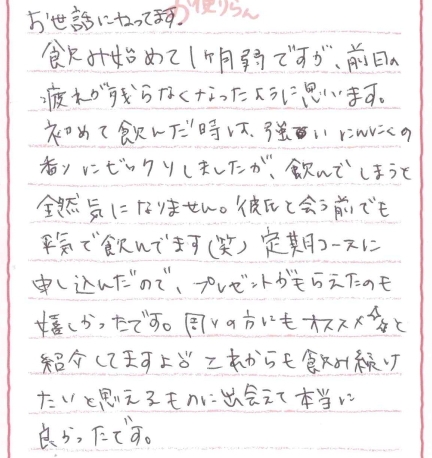 お便りらん
お世話になってます。
飲み始めて1ヶ月弱ですが、前日の
疲れが残らなくなったように思います。
初めて飲んだ時は、強いにんにくの
香りにビックリしましたが、飲んでしまうと
全然気になりません。彼氏と会う前でも
平気で飲んでます(笑) 定期コースに
申し込んだので、プレゼントがもらえたのも
嬉しかったです。周りの方にもオススメ☆と
紹介してますよ♪ これからも飲み続け
たいと思えるものに出会えて本当に
良かったです。